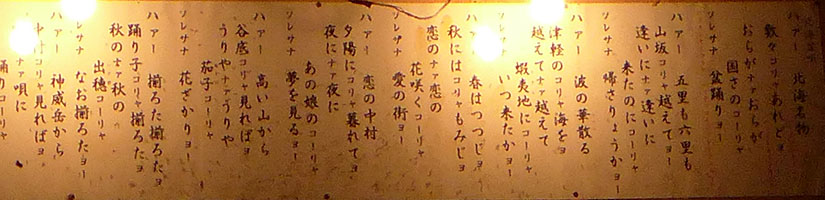 ハァー 北海名物
数々コリャあれどヨ
おらがナァおらが
国さのコーリャ
ソレサナ 盆踊りョー
ハァー 五里も六里も
山坂コリャ越えてョー
逢いにナァ逢いに
来たのにコーリャ
ソレサナ 帰さりょうかョー
ハァー 波の華散る
津軽のコリャ海をョ
越えてナァ越えて
蝦夷地にコーリャ
いつ来たかョー
ハァー 春はつつじョ
秋にはコリャもみじョ
恋のナァ恋の
花咲くコーリャ
ソレサナ 愛の街ョー
ハァー 恋の中村
夕陽にコリャ暮れてョ
夜にナァ夜に
あの娘のコーリャ
ソレサナ 夢を見るョー
ハァー 高い山から
谷底コリャ見ればョ
うりやナァうりや
茄子コーリャ
ソレサナ 花ざかりョー
ハァー 揃ろた揃ろたョ
踊り子コリャ揃ろたョ
秋のナァ秋の
出穂コーリャ
ソレサナ なお揃ろたョー
ハァー 神威岳から
中村コリャ見ればョ
ナァ唄に
踊りコーリャ